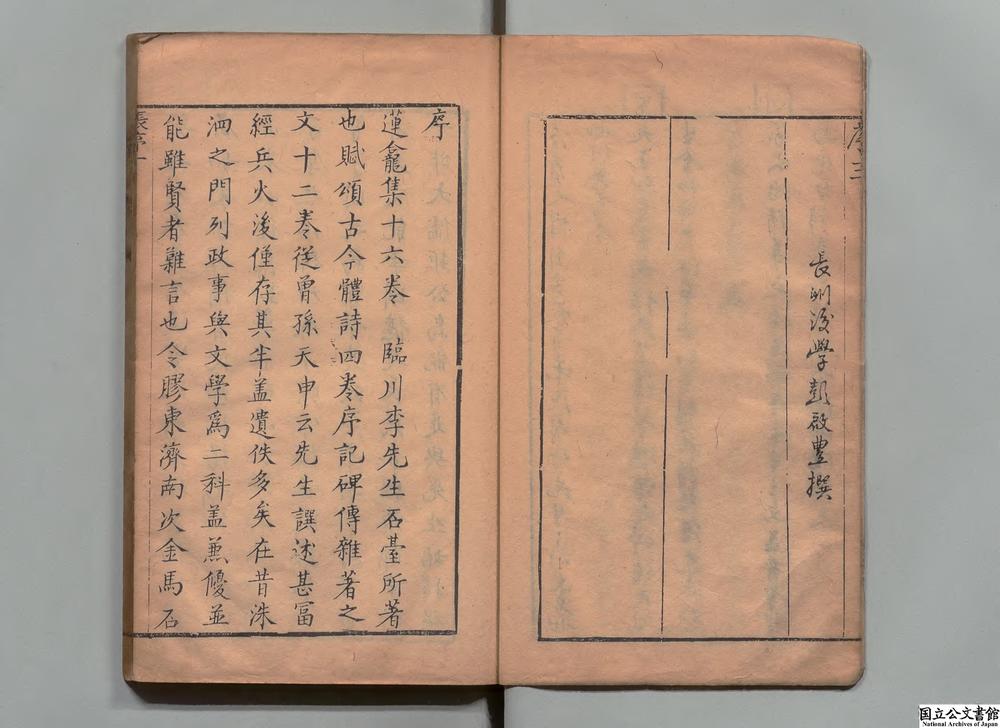 序三
長洲後學彭啟豐撰
序
蓮龕集十六卷臨川李先生石臺所著
也賦頌古今體詩四卷序記碑傳雜著之
文十二卷從曾孫天申云先生譔述甚冨
經兵火後僅存其半盖遺佚多矣在昔洙
泗之門列政事與文學爲二科盖兼優並
能雖賢者難言也令膠東濟南次金馬石
張序一
国立公文書館
National Archives of Japan